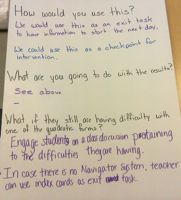 How would you use this?
We would use this as an exit task
to have information to start the next day.
We could use this as a checkpoint for
intervention.
What are you going to do with the results?
See above
-
What if they still are having difficulty with
one of the quadratic forms?
Engage students on a class discussion pertaining
to the difficulties they are having.
• In case there is no Navigator System, teacher
can use index cards as exit task.